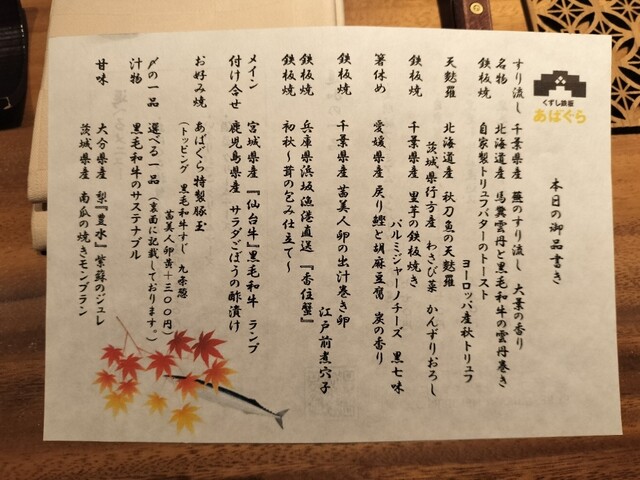 くずし鉄板
あばぐら
本日の御品書き
すり流し 千葉県産 蕪のすり流し 大葉の香り
名物 北海道産 馬糞雲丹と黒毛和牛の雲丹巻き
鉄板焼 自家製トリュフバターのトースト
ヨーロッパ産秋トリュフ
天麩羅 北海道産 秋刀魚の天麩羅
茨城県行方産 わさび菜 かんずりおろし
鉄板焼 千葉県産 里芋の鉄板焼き
パルミジャーノチーズ 黒七味
箸休め 愛媛県産 戻り鰹と胡麻豆腐 炭の香り
鉄板焼 千葉県産 茜美人卵の出汁巻き卵
江戸前煮穴子
鉄板焼 兵庫県浜坂漁港直送 『香住蟹』
鉄板焼 初秋〜茸の包み仕立て〜
メイン 宮城県産 『仙台牛』黒毛和牛 ランプ
付け合せ 鹿児島県産 サラダごぼうの酢漬け
お好み焼 あばぐら特製豚玉
(トッピング 黒毛和牛すじ 九条葱
茜美人卵黄+300円)
〆の一品 選べる一品 (裏面に記載しております。)
汁物 黒毛和牛のサステナブル
甘味 大分県産 梨『豊水』 紫蘇のジュレ
茨城県産 南瓜の焼きモンブラン